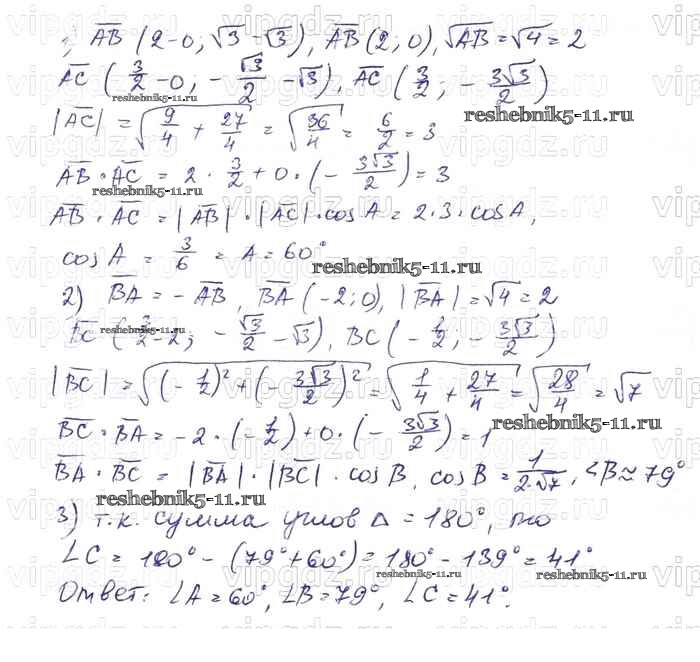 1) AB (2-0; √3-√3), AB (2; 0), √AB = √4 = 2
AC (3/2 - 0; - √3/2 - √3), AC (3/2; - 3√3/2)
reshebnik5-11.ru
reshebnik5-11.ru
|AC| = √(9/4 + 27/4) = √(36/4) = 6/2 = 3
AB · AC = 2 · 3/2 + 0 · (- 3√3/2) = 3
reshebnik5-11.ru
AB · AC = |AB| · |AC| · cos A = 2 · 3 · cos A,
cos A = 3/6 = A = 60°
reshebnik5-11.ru
2) BA = - AB, BA (-2; 0), |BA| = √4 = 2
BC (3/2 - 2; - √3/2 - √3), BC (- 1/2; - 3√3/2)
reshebnik5-11.ru
|BC| = √((- 1/2)² + (- 3√3/2)²) = √(1/4 + 27/4) = √(28/4) = √7
BC · BA = -2 · (- 1/2) + 0 · (- 3√3/2) = 1
reshebnik5-11.ru
BA · BC = |BA| · |BC| · cos B, cos B = 1/(2·√7), ∠B ≈ 79°
reshebnik5-11.ru
3) т.к. сумма углов Δ = 180°, то
∠C = 180° - (79° + 60°) = 180° - 139° = 41°
reshebnik5-11.ru
reshebnik5-11.ru
Ответ: ∠A = 60°, ∠B = 79°, ∠C = 41°.
vipgdz.ru